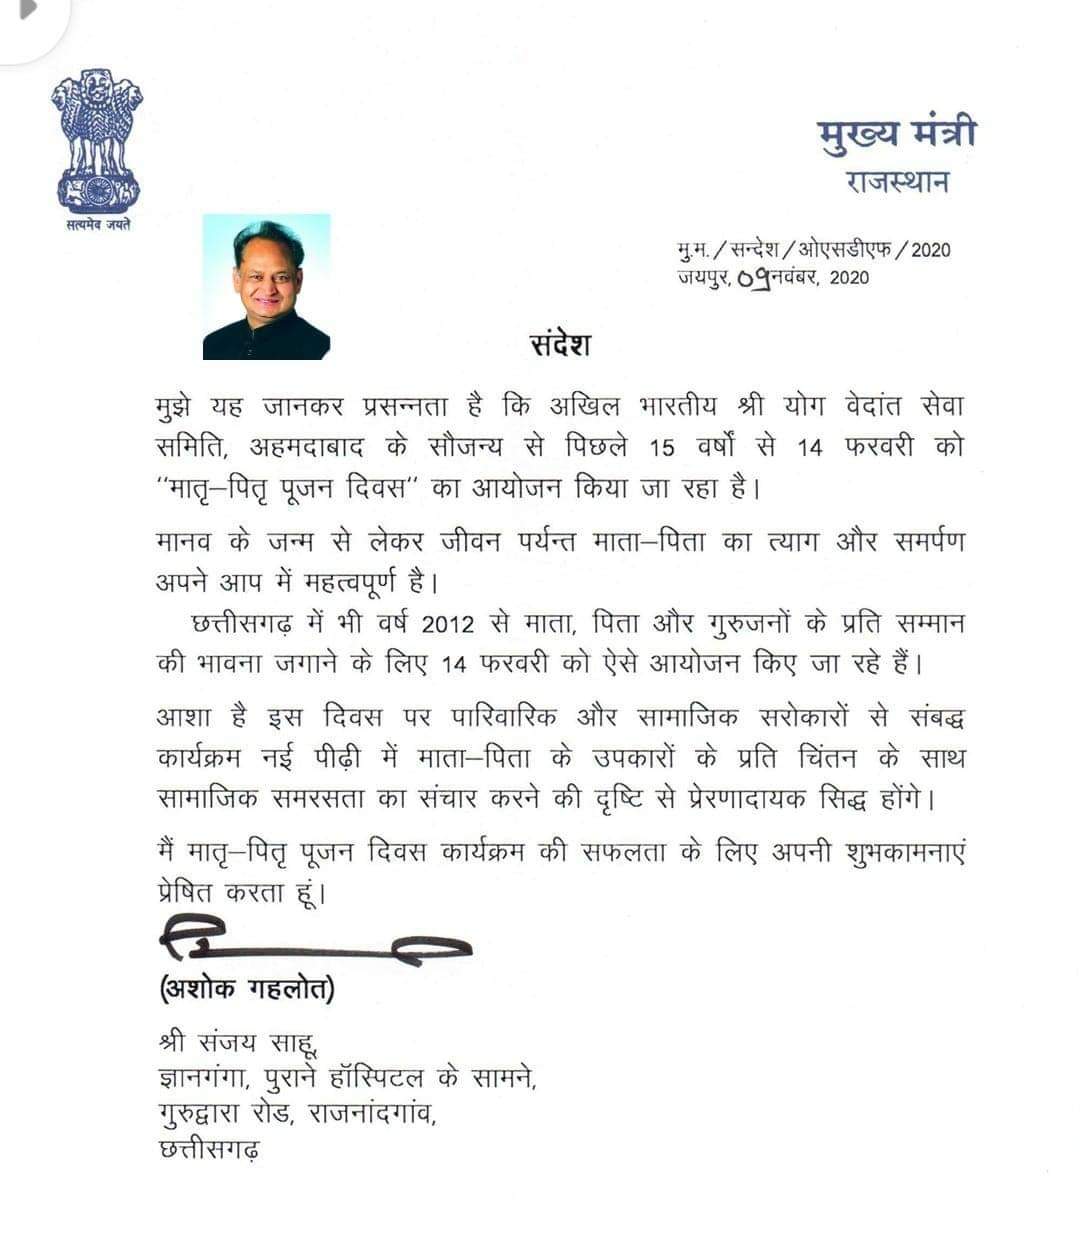 सत्यमेव जयते
मुख्य मंत्री
राजस्थान
मु.म./सन्देश/ओएसडीएफ/2020
जयपुर, 09 नवंबर, 2020
संदेश
मुझे यह जानकर प्रसन्नता है कि अखिल भारतीय श्री योग वेदांत सेवा
समिति, अहमदाबाद के सौजन्य से पिछले 15 वर्षों से 14 फरवरी को
“मातृ–पितृ पूजन दिवस“ का आयोजन किया जा रहा है।
मानव के जन्म से लेकर जीवन पर्यन्त माता–पिता का त्याग और समर्पण
अपने आप में महत्वपूर्ण है।
छत्तीसगढ़ में भी वर्ष 2012 से माता, पिता और गुरुजनों के प्रति सम्मान
की भावना जगाने के लिए 14 फरवरी को ऐसे आयोजन किए जा रहे हैं।
आशा है इस दिवस पर पारिवारिक और सामाजिक सरोकारों से संबद्ध
कार्यक्रम नई पीढ़ी में माता–पिता के उपकारों के प्रति चिंतन के साथ
सामाजिक समरसता का संचार करने की दृष्टि से प्रेरणादायक सिद्ध होंगे।
मैं मातृ–पितृ पूजन दिवस कार्यक्रम की सफलता के लिए अपनी शुभकामनाएं
प्रेषित करता हूं।
(अशोक गहलोत)
श्री संजय साहू,
ज्ञानगंगा, पुराने हॉस्पिटल के सामने,
गुरुद्वारा रोड, राजनांदगांव,
छत्तीसगढ़